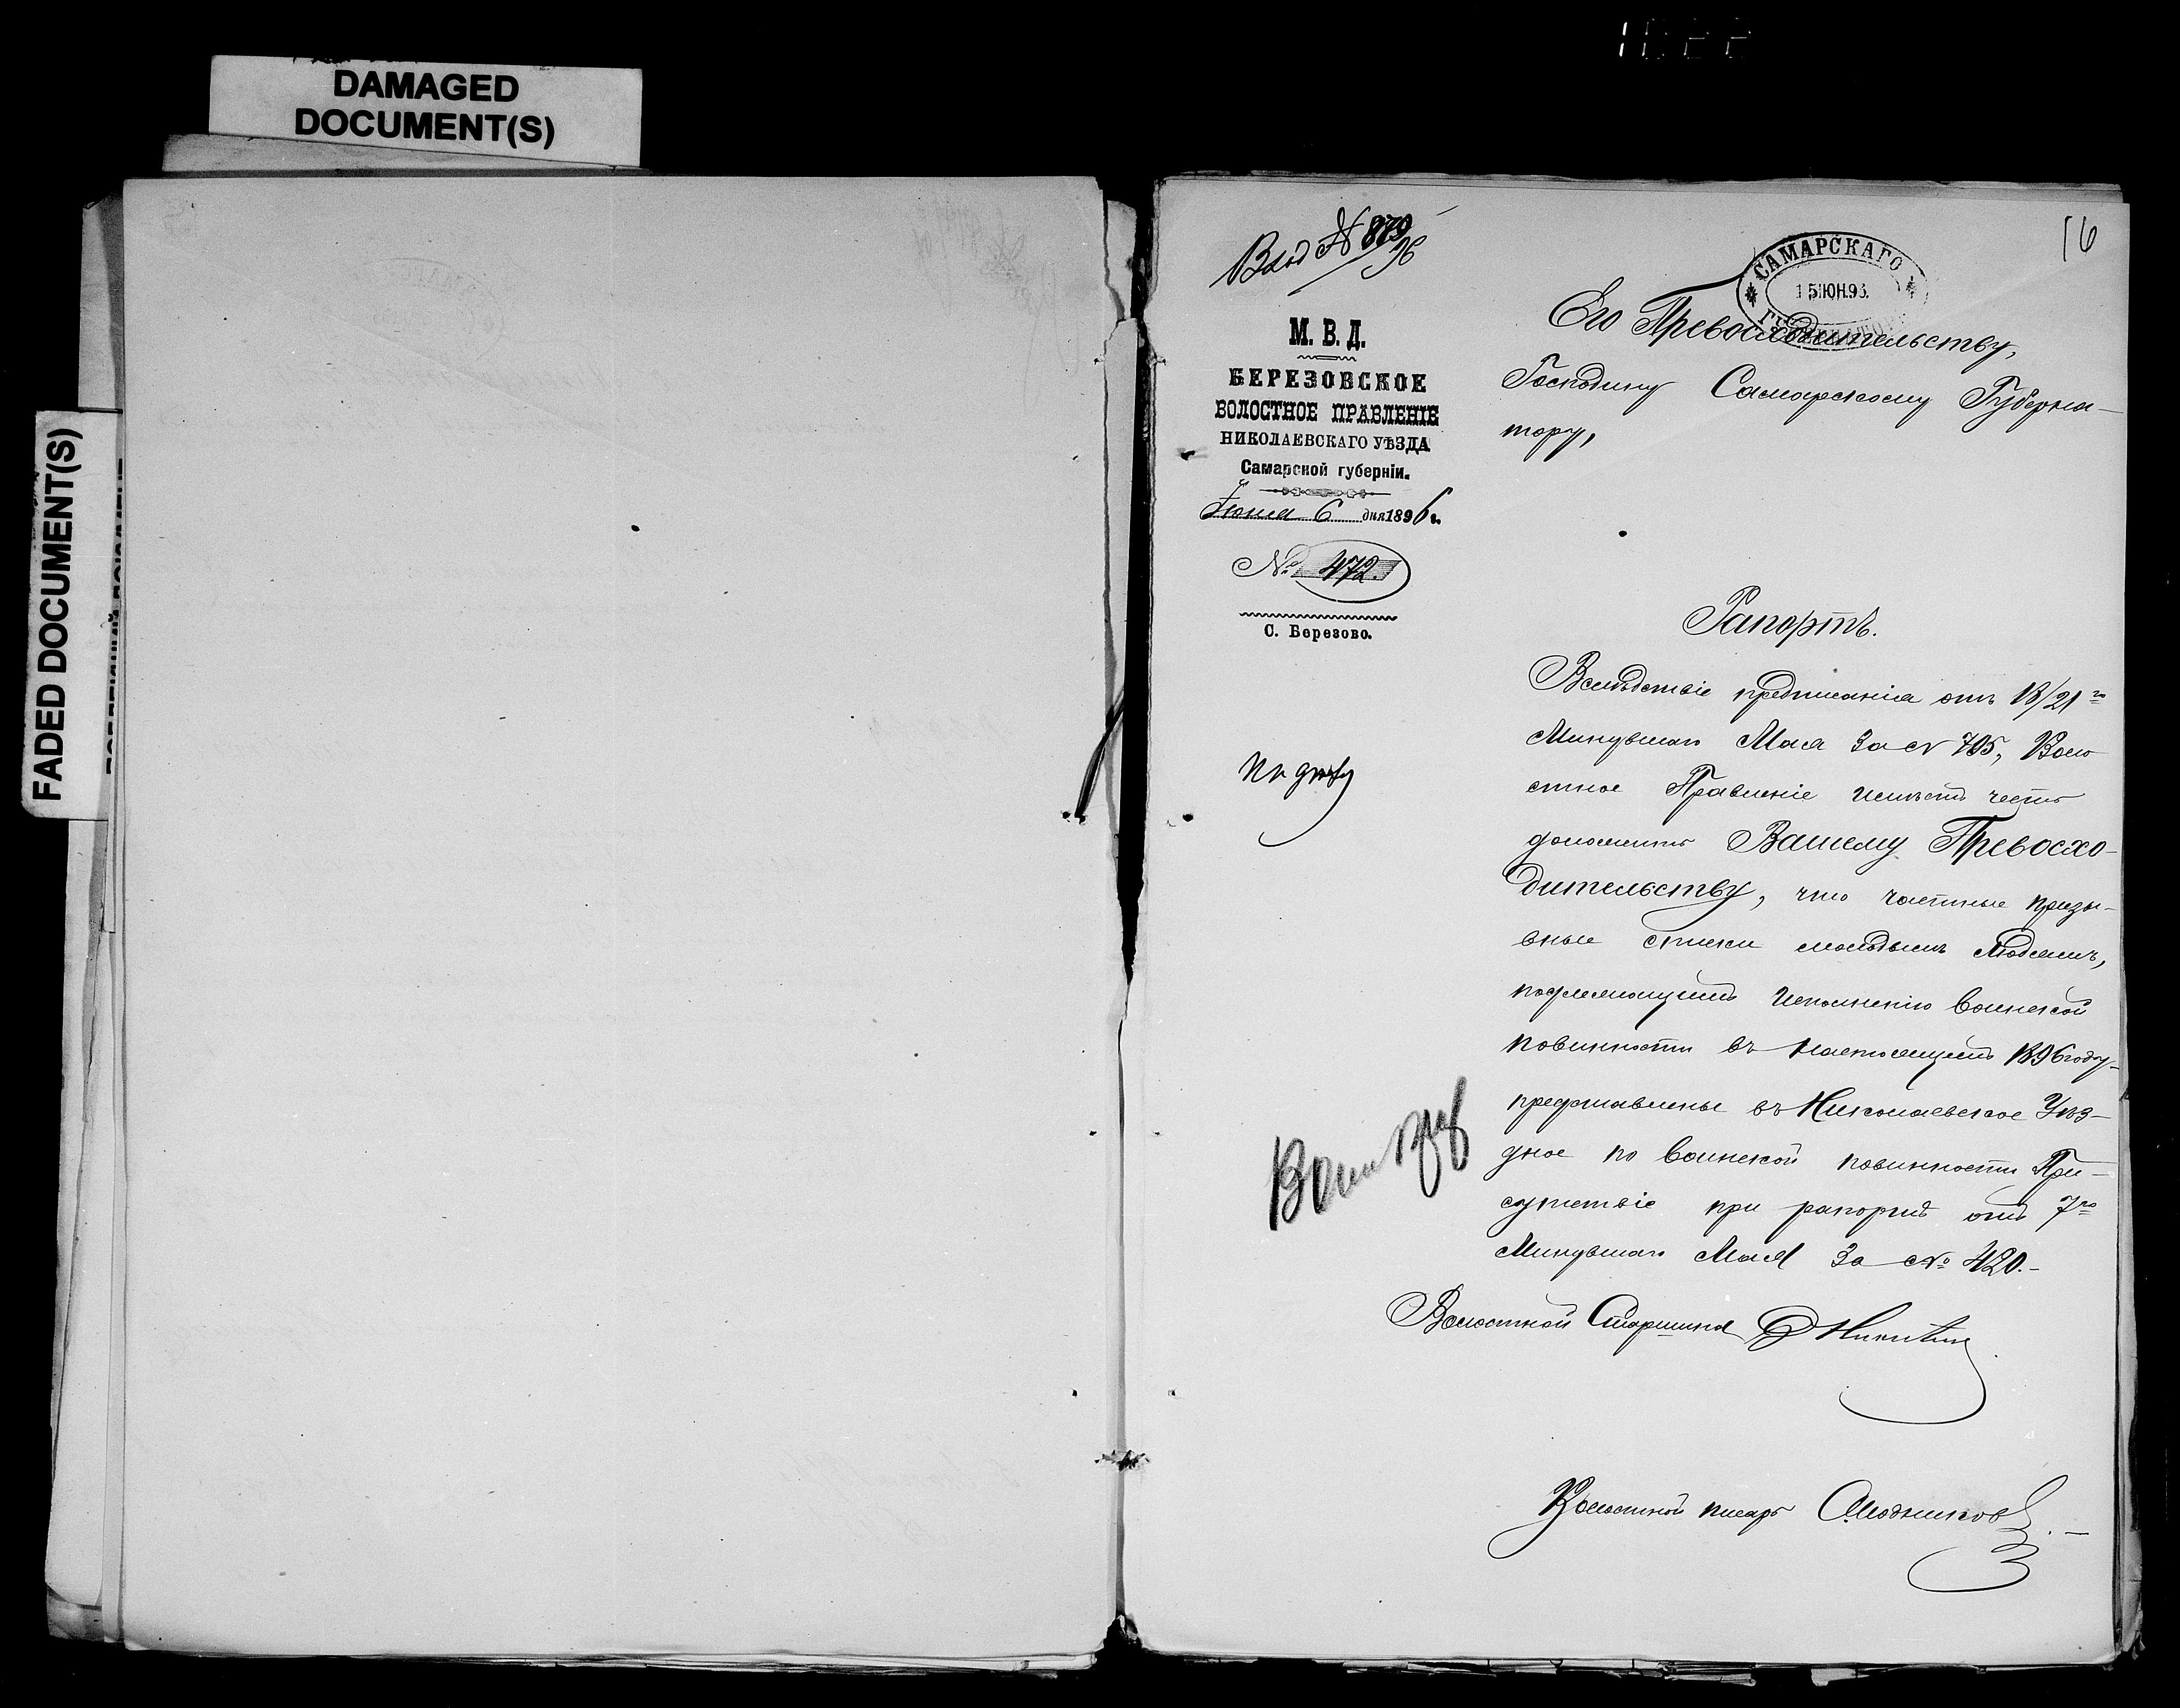 DAMAGED
DOCUMENT(S)
FADED DOCUMENT(S)
1022
16
Вход № 879/96
САМАРСКАГО
15 ІЮН.96.
М. В. Д.
БЕРЕЗОВСКОЕ
ВОЛОСТНОЕ ПРАВЛЕНІЕ
НИКОЛАЕВСКАГО УѢЗДА
Самарской губерніи.
Іюня 6 дня 1896 г.
№ 472.
С. Березово.
Его Превосходительству,
Господину Самарскому Губерна-
тору,
Рапортъ.
Вслѣдствіе предписанія отъ 18/21го
Минувшаго Мая за № 705, Воло
стное Правленіе имѣетъ честь
доложить Вашему Превосхо-
дительству, что частные призы-
вные списки молодымъ людямъ,
подлежащимъ исполненію воинской
повинности въ настоящемъ 1896 году
представлены въ Николаевское Уѣз-
дное по воинской повинности При-
сутствіе при рапортѣ отъ 7го
Минувшаго Мая за № 420.-
Волостной Старшина Никитин
Волостной писарь